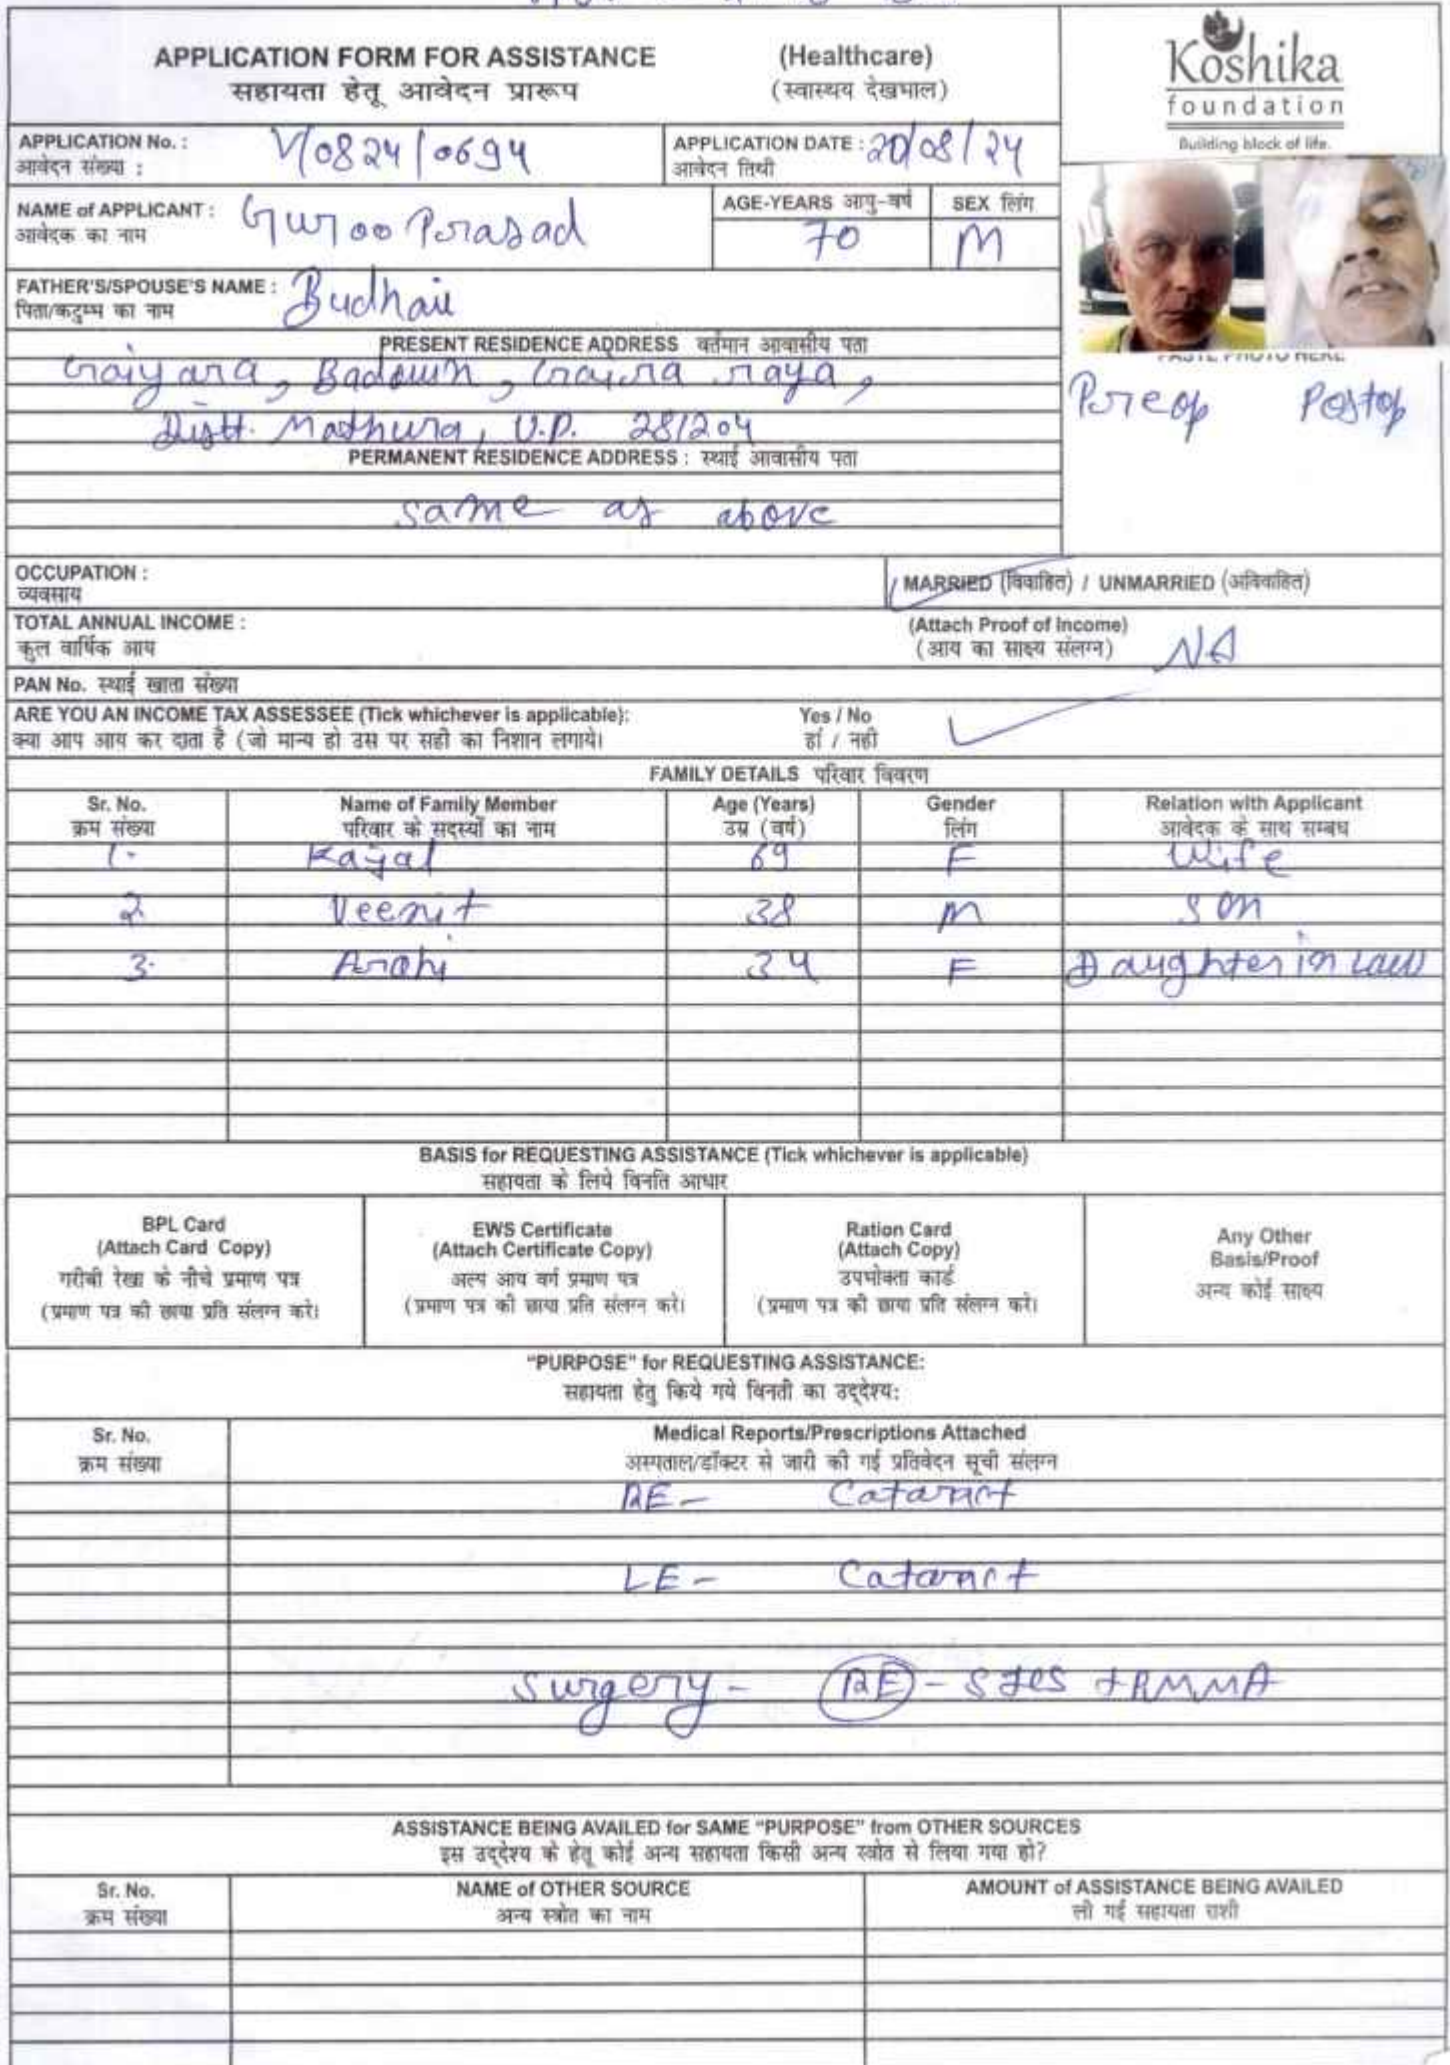 APPLICATION FORM FOR ASSISTANCE (Healthcare)
सहायता हेतू आवेदन प्रारूप (स्वास्थय देखभाल)
Koshika
foundation
Building block of life.
APPLICATION No. : V/0824/0694
आवेदन संख्या :
APPLICATION DATE : 20/08/24
आवेदन तिथी
NAME of APPLICANT : Guroo Prasad
आवेदक का नाम
AGE-YEARS आयु-वर्ष SEX लिंग
70 M
FATHER'S/SPOUSE'S NAME : Budhai
पिता/कटुम्भ का नाम
PRESENT RESIDENCE ADDRESS वर्तमान आवासीय पता
raya,
Distt. Mathura, U.P. 281204
PERMANENT RESIDENCE ADDRESS : स्थाई आवासीय पता
same as above
PASTE PHOTO HERE
Preop Postop
OCCUPATION :
व्यवसाय
MARRIED (विवाहित) / UNMARRIED (अविवाहित)
TOTAL ANNUAL INCOME :
कुल वार्षिक आय
(Attach Proof of Income)
(आय का साक्ष्य संलग्न) NA
PAN No. स्थाई खाता संख्या
ARE YOU AN INCOME TAX ASSESSEE (Tick whichever is applicable): Yes / No
क्या आप आय कर दाता है (जो मान्य हो उस पर सही का निशान लगाये। हां / नही
FAMILY DETAILS परिवार विवरण
Sr. No. Name of Family Member Age (Years) Gender Relation with Applicant
क्रम संख्या परिवार के सदस्यों का नाम उम्र (वर्ष) लिंग आवेदक के साथ सम्बध
1. Kajal 69 F Wife
2. Veenit 38 M Son
3. 34 F Daughter in Law
BASIS for REQUESTING ASSISTANCE (Tick whichever is applicable)
सहायता के लिये विनति आधार
BPL Card
(Attach Card Copy)
गरीबी रेखा के नीचे प्रमाण पत्र
(प्रमाण पत्र की छाया प्रति संलग्न करे।
EWS Certificate
(Attach Certificate Copy)
अल्प आय वर्ग प्रमाण पत्र
(प्रमाण पत्र की छाया प्रति संलग्न करे।
Ration Card
(Attach Copy)
उपभोक्ता कार्ड
(प्रमाण पत्र की छाया प्रति संलग्न करे।
Any Other
Basis/Proof
अन्य कोई साक्ष्य
"PURPOSE" for REQUESTING ASSISTANCE:
सहायता हेतु किये गये विनती का उद्देश्य:
Sr. No. Medical Reports/Prescriptions Attached
क्रम संख्या अस्पताल/डॉक्टर से जारी की गई प्रतिवेदन सूची संलग्न
RE- Cataract
LE- Cataract
Surgery- RE - SICS + PMMA
ASSISTANCE BEING AVAILED for SAME "PURPOSE" from OTHER SOURCES
इस उद्देश्य के हेतू कोई अन्य सहायता किसी अन्य स्त्रोत से लिया गया हो?
Sr. No. NAME of OTHER SOURCE AMOUNT of ASSISTANCE BEING AVAILED
क्रम संख्या अन्य स्त्रोत का नाम ली गई सहायता राशी